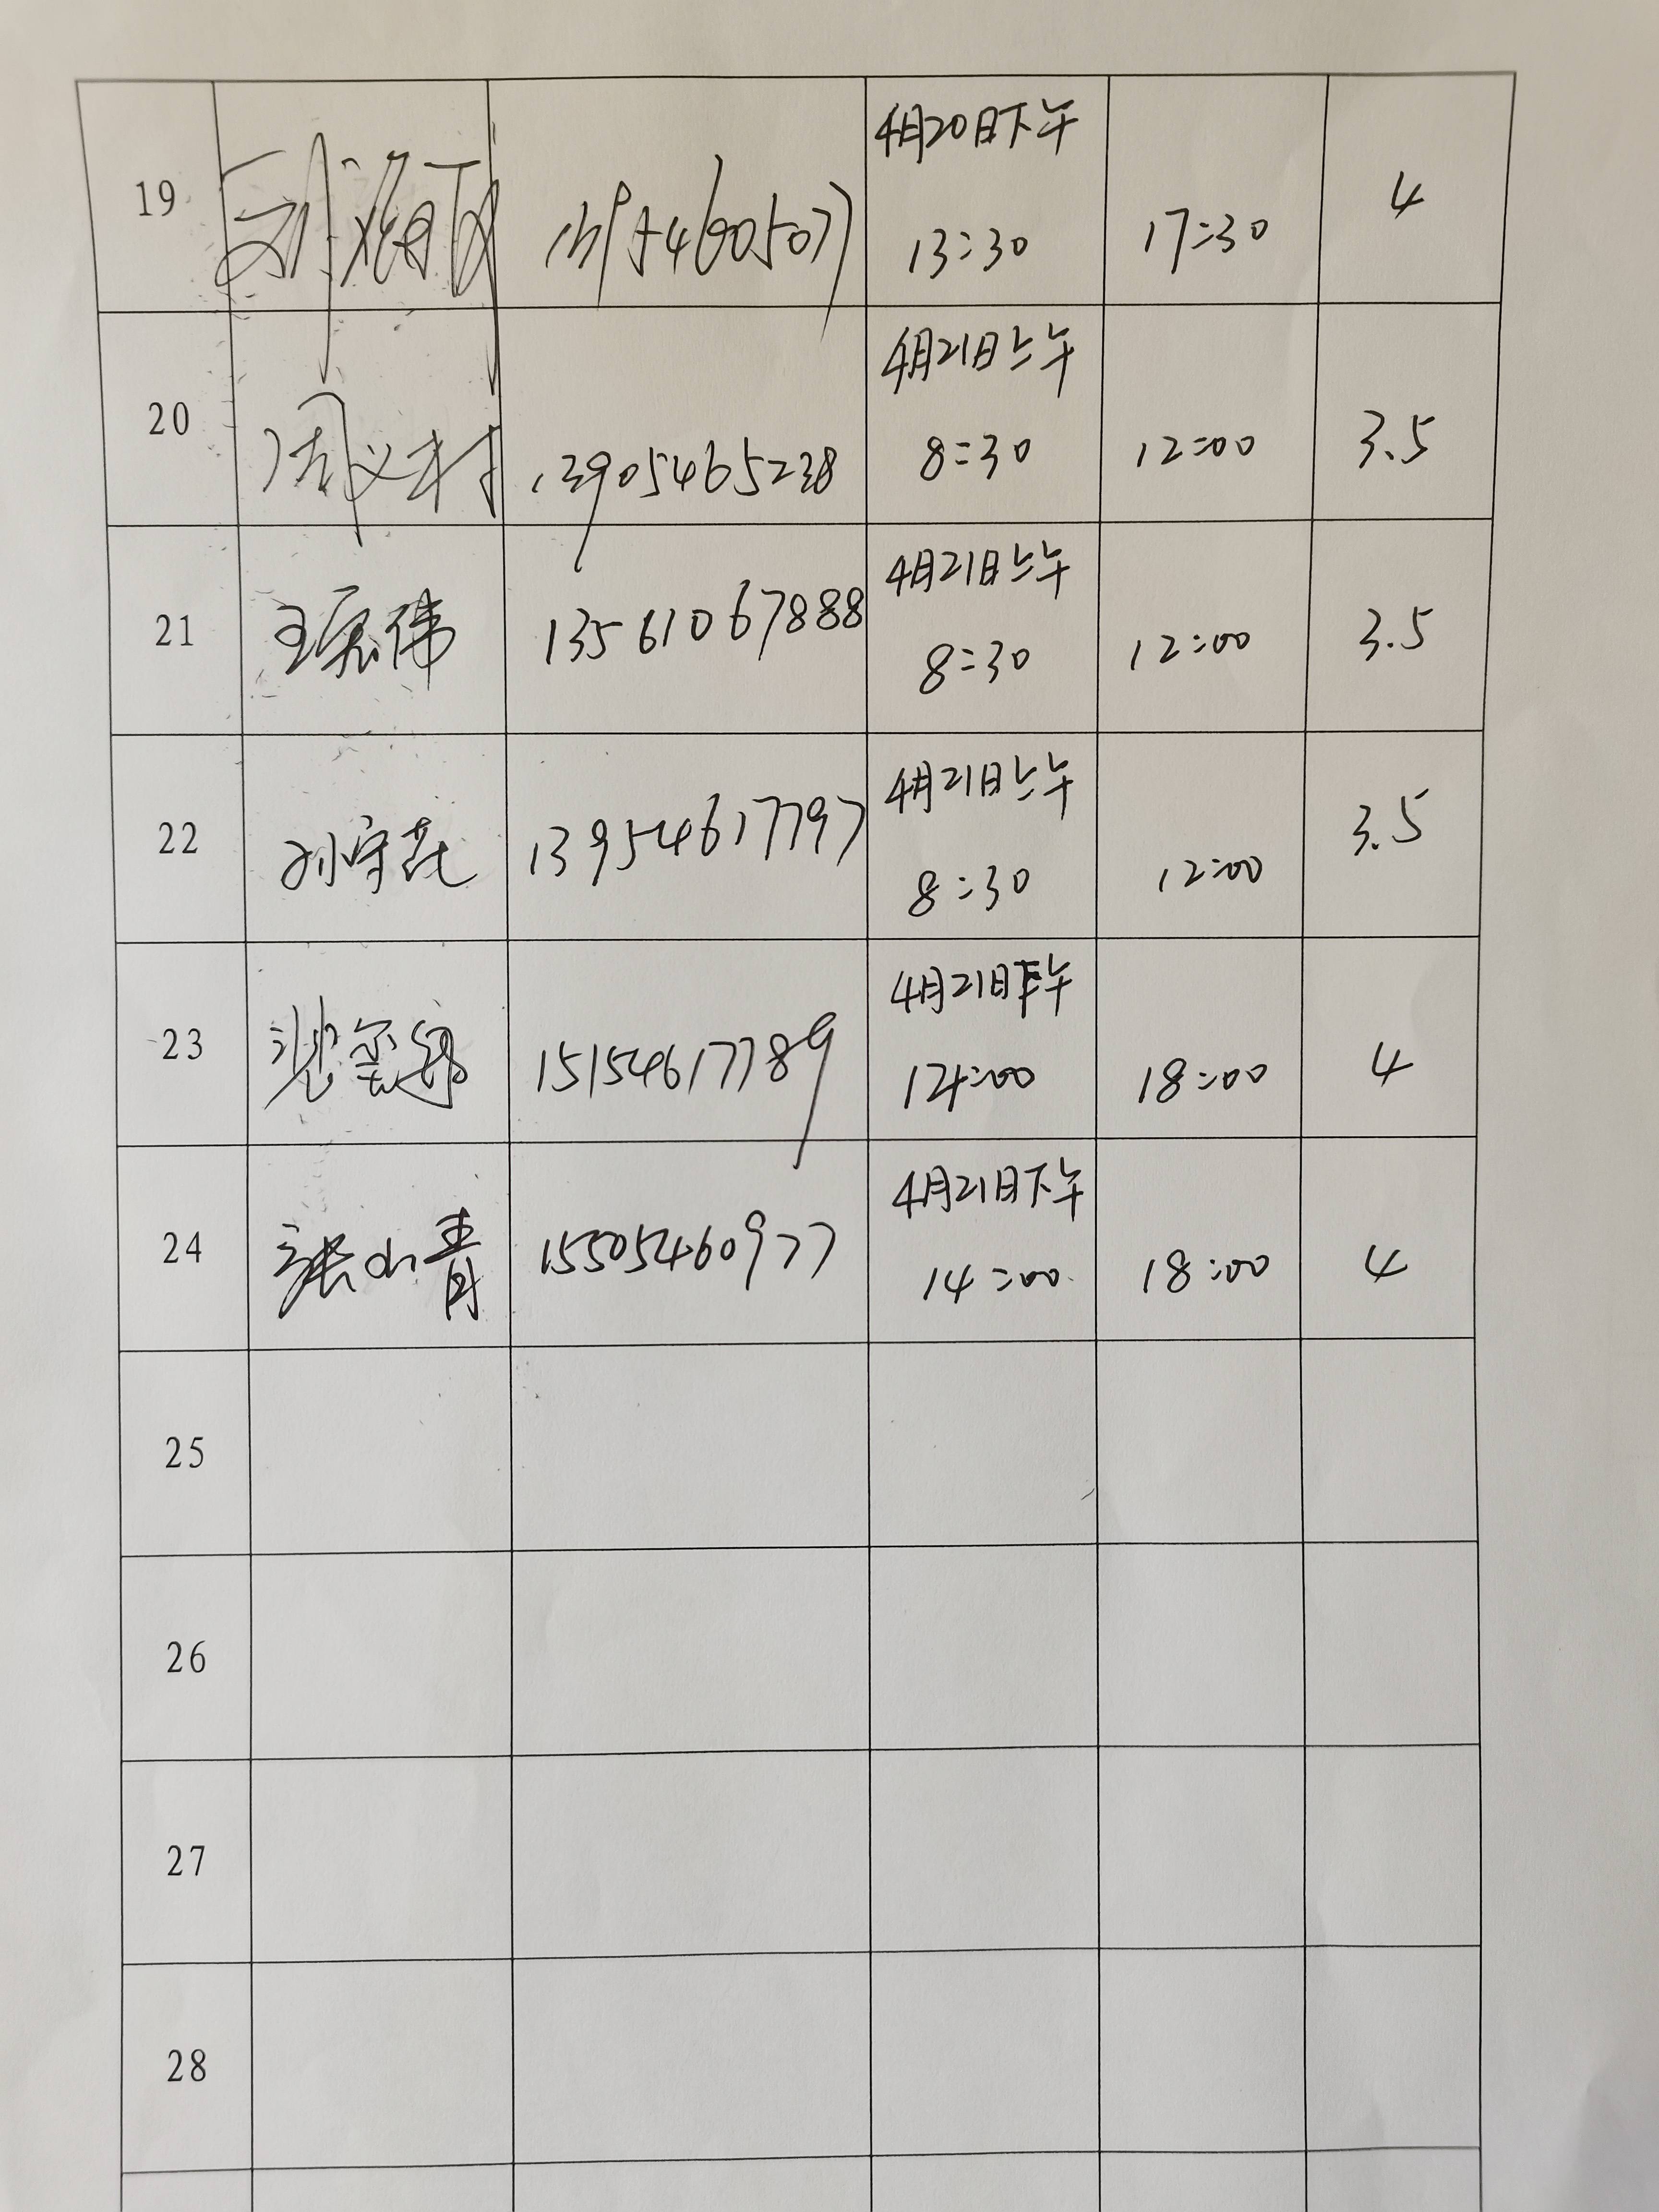 4月20日下午
19 4
13:30 17:30
4月21日上午
20 周义村 13905465238 8:30 12:00 3.5
4月21日上午
21 王宪伟 13561067888 8:30 12:00 3.5
4月21日上午
22 孙守花 13954617797 8:30 12:00 3.5
4月21日下午
23 15154617789 14:00 18:00 4
4月21日下午
24 张小青 15505460977 14:00 18:00 4
25
26
27
28